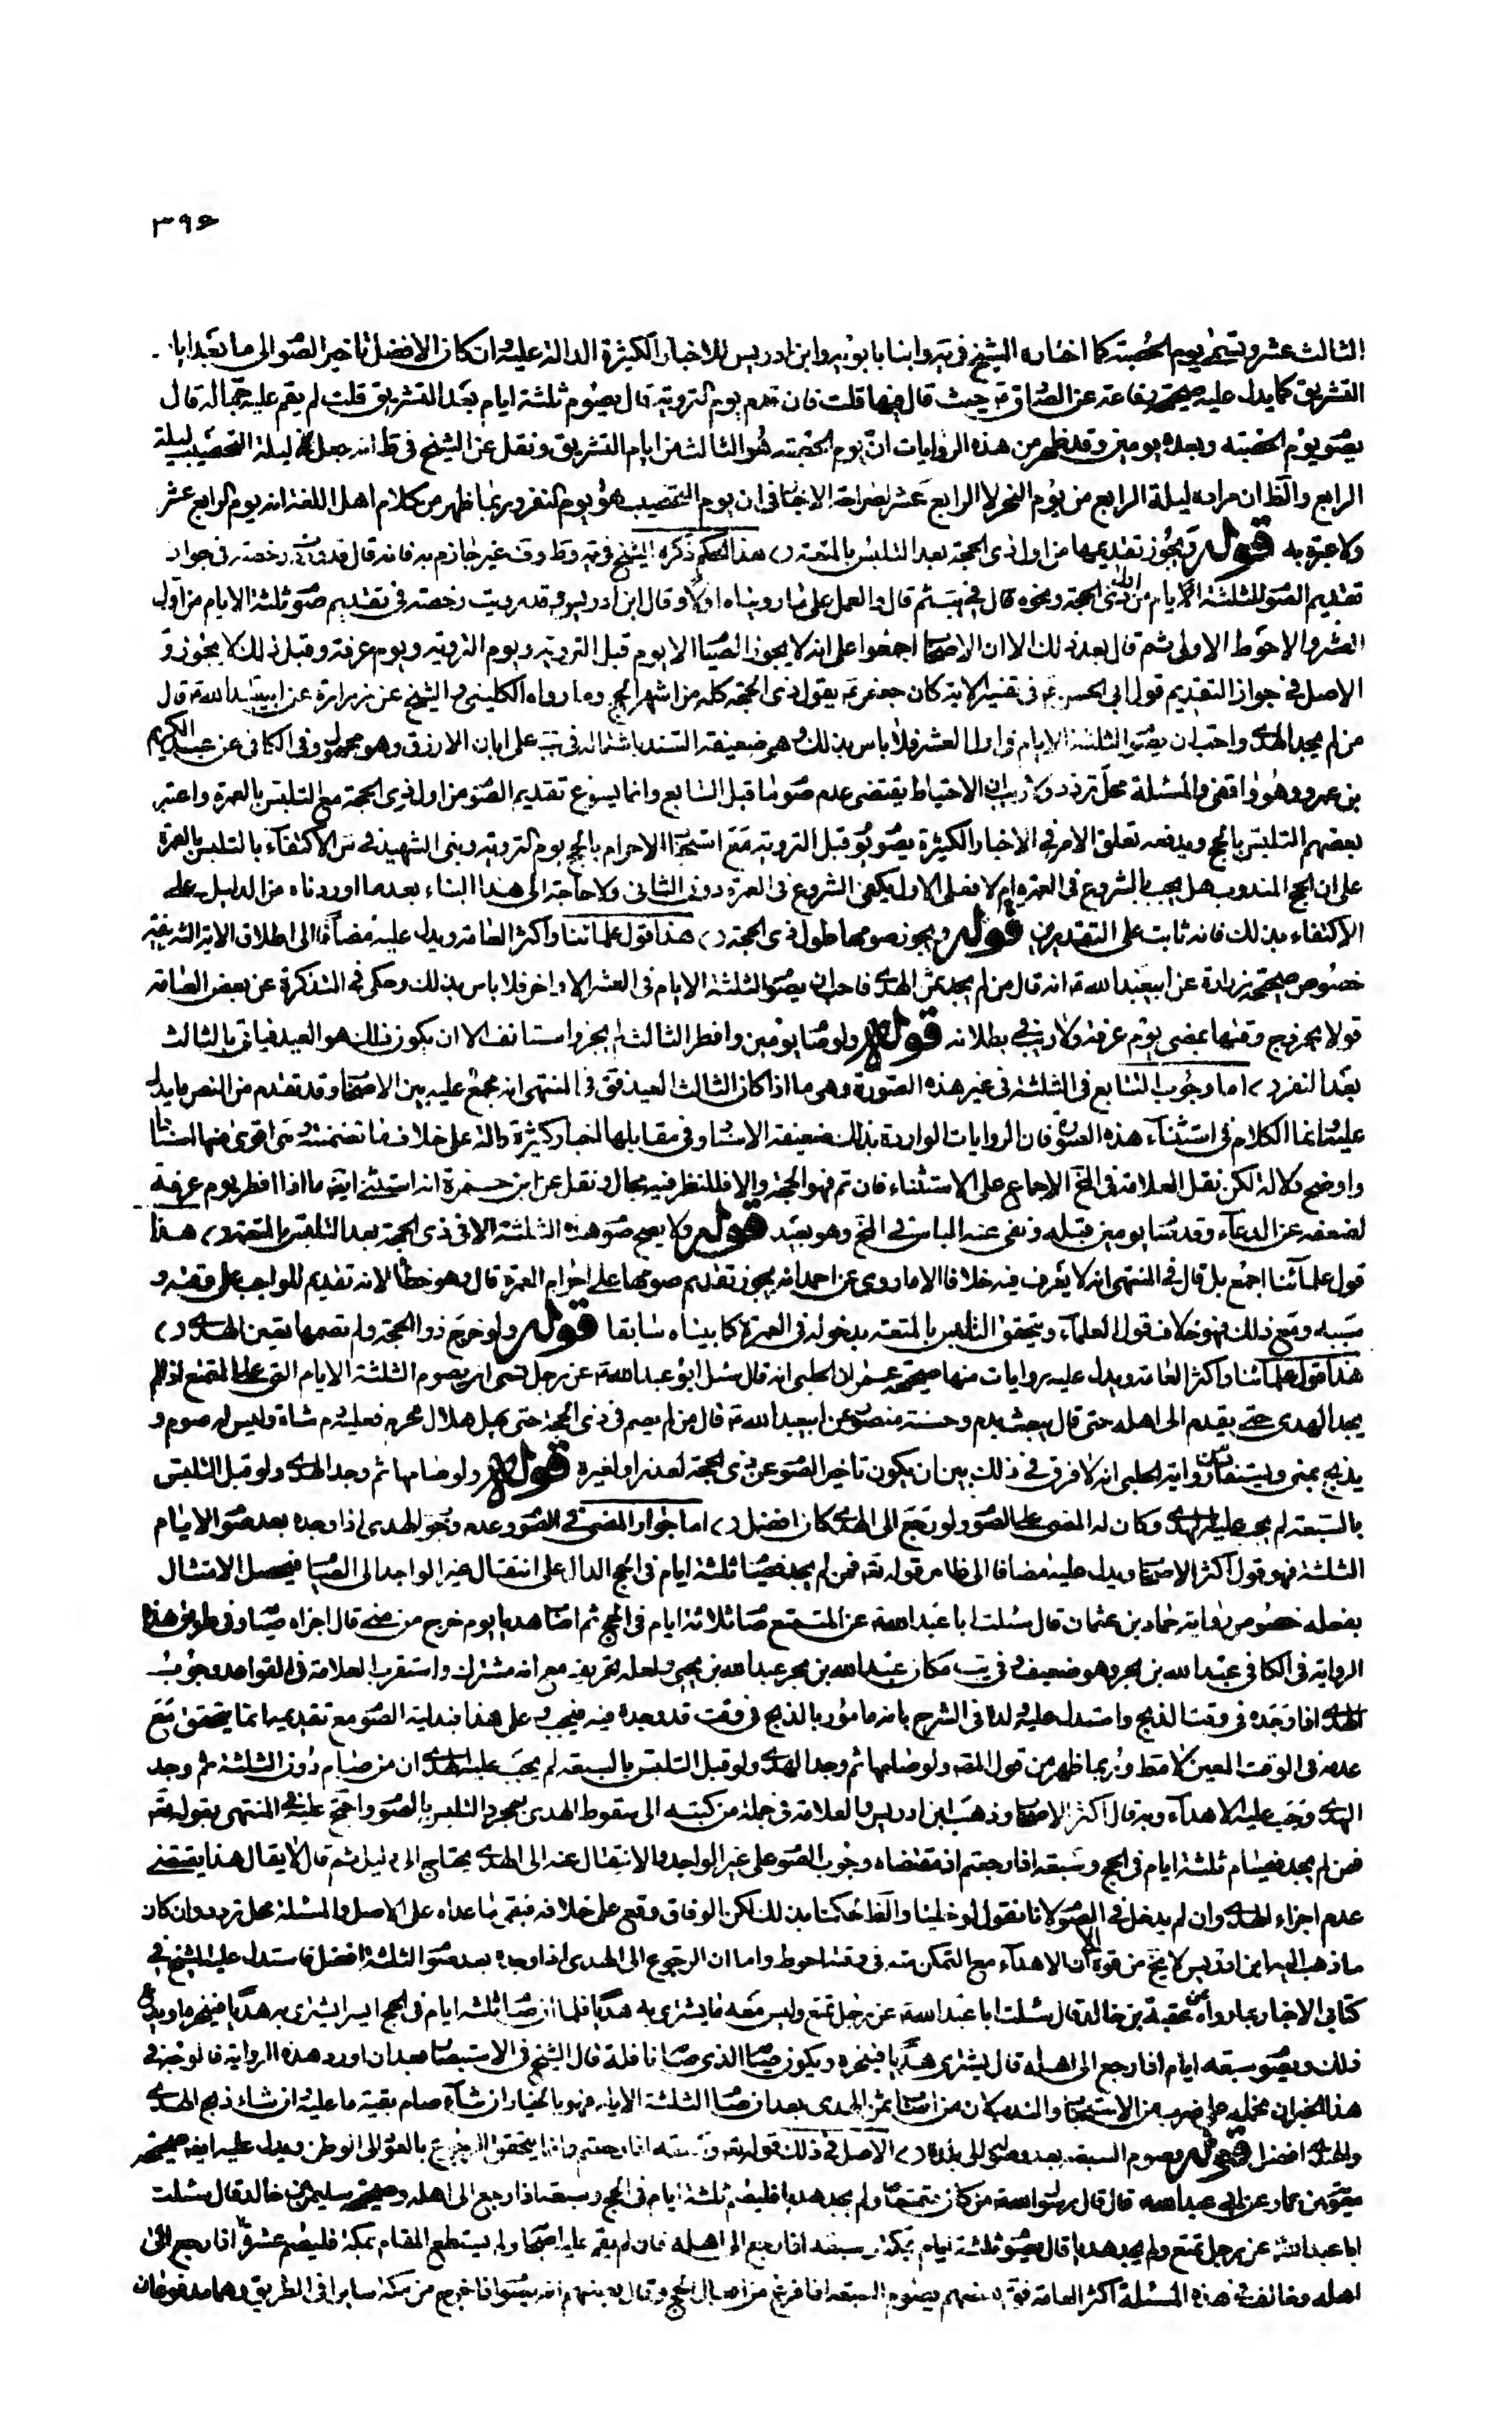 ٣٩٤
الثالث عشر ويسمى يوم الحصبة كما اختاره الشيخ في يه وابنا بابويه وابن ادريس للاخبار الكثيرة الدالة عليه وان كان الافضل تاخير الصو الى ما بعد ايا
التشريق كما يدل عليه صحيحة رفاعة عن الصادق ع حيث قال فيها قلت فان قدم يوم التروية قال يصوم ثلثة ايام بعد التشريق قلت لم يقم عليه جماله قال
يصو يوم الحصبة وبعده يومين وقد ظهر من هذه الروايات ان يوم الحصبة هو الثالث من ايام التشريق ونقل عن الشيخ في ط انه جعل ليلة التحصيب ليلة
الرابع والظ ان مراده ليلة الرابع من يوم النحر لا الرابع عشر لصراحة الاخبا في ان يوم التحصيب هو يوم النفر وربما ظهر من كلام اهل اللغة انه يوم الرابع عشر
ولا عبرة به قوله ويجوز تقديمها من اول ذى الحجة بعد التلبس بالمتعة ، هذا الحكم ذكره الشيخ في يه وط وفيه غير جازم به فانه قال قد وردت رخصة في جواز
تقديم الصو الثلثة الايام من اول ذى الحجة ونحوه قال في يب ثم قال والعمل على ما رويناه اولا وقال ابن ادريس وقد رويت رخصة في تقديم صو ثلثة الايام من اول
العشر والاحوط الاولى ثم قال بعد ذلك الا ان الاصحا اجمعوا على انه لا يجوز الصيا الا يوم قبل التروية ويوم التروية ويوم عرفة وقبل ذلك لا يجوز و
الاصل في جواز التقديم قول ابى الحسن ع في تفسير الاية كان جعفر ع يقول ذى الحجة كله من اشهر الحج وما رواه الكلينى والشيخ عن زرارة عن ابيعبد الله ع قال
من لم يجد الهدى واحب ان يصو الثلثة الايام في اول العشر فلا باس بذلك وهو ضعيفة السند باشتماله في يب على ابان الازرق وهو مجهول وفي الكافى عن عبد الكريم
بن عمرو وهو واقفى والمسئلة محل تردد ولا ريب ان الاحتياط يقتضى عدم صو ما قبل السابع وانما يسوغ تقديم الصو من اول ذى الحجة مع التلبس بالعمرة واعتبر
بعضهم التلبس بالحج ويدفعه تعلق الامر في الاخبار الكثيرة بصو يو قبل التروية مع استحبا الاحرام بالحج يوم التروية وبنى الشهيد في س الاكتفاء بالتلبس بالعمرة
على ان الحج المندوب هل يجب بالشروع في العمرة ام لا فعلى الاول يكفى الشروع في العمرة دون الثانى ولا حاجة الى هذا البناء بعد ما اوردناه من الدليل على
الاكتفاء بذلك فانه ثابت على التقديرين قوله ويجوز صومها طول ذى الحجة ، هذا قول علمائنا واكثر العامة ويدل عليه مضافا الى اطلاق الاية الشريفة
خصوص صحيحة زرارة عن ابيعبد الله ع انه قال من لم يجد ثمن الهدى فاحب ان يصو الثلثة الايام في العشر الاواخر فلا باس بذلك وحكى في التذكرة عن بعض العامة
قولا بخروج وقتها بمضى يوم عرفة ولا ريب في بطلانه قوله ولو صا يومين وافطر الثالث لم يجز واستانف الا ان يكون ذلك هو العيد فياتى بالثالث
بعد النفر ، اما وجوب التتابع في الثلثة في غير هذه الصورة وهى ما اذا كان الثالث العيد فق في المنتهى انه مجمع عليه بين الاصحا وقد تقدم من النصر ما يدل
عليه وانما الكلام في استثناء هذه الصورة فان الروايات الواردة بذلك ضعيفة الاسنا وفي مقابلها اخبار كثيرة دالة على خلاف ما تضمنته وهى اقوى منها اسنادا
واوضح دلالة لكن نقل العلامة في المخ الاجماع على الاستثناء فان تم فهو الحجة والا فللنظر فيه مجال ونقل عن ابن حمزة انه استثنى ايضا ما اذا افطر يوم عرفة
لضعفه عن الدعاء وقد صا يومين قبله ونفى عنه الباس في المخ وهو بعيد قوله ولا يصح صو هذه الثلثة الا في ذى الحجة بعد التلبس بالمتعة ، هذا
قول علمائنا اجمع بل قال في المنتهى انه لا يعرف فيه خلافا الا ما روى عن احمد انه يجوز تقديم صومها على احرام العمرة قال وهو خطأ لانه تقديم للواجب على وقته و
سببه ومع ذلك فهو خلاف قول العلماء ويتحقق التلبس بالمتعة بدخوله في العمرة كما بيناه سابقا قوله ولو خرج ذو الحجة ولم يصمها تعين الهدى ،
هذا قول علمائنا واكثر العامة ويدل عليه روايات منها صحيحة عمران الحلبى انه قال سئل ابو عبد الله ع عن رجل نسى ان يصوم الثلثة الايام التى على المتمتع اذا لم
يجد الهدى حتى يقدم الى اهله حتى قال يبعث بدم وحسنة منصو عن ابيعبد الله ع قال من لم يصم في ذى الحجة حتى يهل هلال محرم فعليه دم شاة وليس له صوم و
يذبح بمنى ويستفاد من رواية الحلبى انه لا فرق في ذلك بين ان يكون تاخير الصو عن ذى الحجة لعذر او لغيره قوله ولو صامها ثم وجد الهدى ولو قبل التلبس
بالسبعة لم يجب عليه الهدى وكان له المضى على الصو ولو رجع الى الهدى كان افضل ، اما جواز المضى في الصو وعدم وجو الهدى اذا وجده بعد صو الايام
الثلثة فهو قول اكثر الاصحا ويدل عليه مضافا الى ظاهر قوله تع فمن لم يجد فصيا ثلثة ايام في الحج الدال على انتقال غير الواجد الى الصيا فيحصل الامتثال
بفعله خصوص رواية حماد بن عثمان قال سئلت ابا عبد الله ع عن المتمتع صا ثلاثة ايام في الحج ثم اصا هديا يوم خرج من منى قال اجزاه صيا وفي طريق هذه
الرواية في الكافى عبد الله بن بحر وهو ضعيف وفي يب مكان عبد الله بن بحر عبد الله بن يحيى ولعله تحريف مع انه مشترك واستقرب العلامة في القواعد وجوب
الهدى اذا وجده في وقت الذبح واستدل عليه ولده في الشرح بانه مامور بالذبح في وقت قد وجده فيه فيجب وعلى هذا فبدلية الصو مع تقديمه انما يتحقق مع
عدمه في الوقت المعين لا مط وربما ظهر من قول المصه ولو صامها ثم وجد الهدى ولو قبل التلبس بالسبعة لم يجب عليه الهدى ان من صام دون الثلثة ثم وجد
الهدى وجب عليه الاهداء وبه قال اكثر الاصحا وذهب ابن ادريس والعلامة في جملة من كتبه الى سقوط الهدى بمجرد التلبس بالصو واحتج عليه في المنتهى بقوله تع
فمن لم يجد فصيام ثلثة ايام في الحج وسبعة اذا رجعتم اذ مقتضاه وجوب الصو على غير الواجد والانتقال عنه الى الهدى يحتاج الى دليل ثم قال لا يقال هذا يقتضى
عدم اجزاء الهدى وان لم يدخل في الصو لانا نقول لو خلينا والظ لحكمنا بذلك لكن الوفاق وقع على خلافه فبقى ما عداه على الاصل والمسئلة محل تردد وان كان
ما ذهب اليه ابن ادريس لا يخ من قوة الا ان الاهداء مع التمكن منه في وقته احوط واما ان الرجوع الى الهدى اذا وجده بعد صو الثلثة افضل فاستدل عليه الشيخ في
كتابى الاخبار بما رواه عن عقبة بن خالد قال سئلت ابا عبد الله ع عن رجل تمتع وليس معه ما يشترى به هديا فلما ان صا ثلثة ايام في الحج ايسر ايشترى به هديا فينحره او يدع
ذلك ويصو سبعة ايام اذا رجع الى اهله قال يشترى هديا فينحره ويكون صيا الذى صا نافلة قال الشيخ في الاستبصا بعد ان اورد هذه الرواية فالوجه في
هذا الخبر ان نحمله على ضرب من الاستحبا والندب لان من اصا ثمن الهدى بعد ان صا الثلثة الايام فهو بالخيار ان شاء صام بقية ما عليه وان شاء ذبح الهدى
والهدى افضل قوله وصوم السبعة بعد وصوله الى بلده ، الاصل في ذلك قوله تع وسبعة اذا رجعتم وانما يتحقق الرجوع بالعو الى الوطن ويدل عليه ايضا صحيحة
معوية بن عمار عن ابى عبد الله قال قال رسول الله ص من كان متمتعا ولم يجد هديا فليصم ثلثة ايام في الحج وسبعة اذا رجع الى اهله وصحيحة سليمان بن خالد قال سئلت
ابا عبد الله ع عن رجل تمتع ولم يجد هديا قال يصو ثلثة ايام بمكة وسبعة اذا رجع الى اهله فان لم يقم عليه اصحا ولم يستطع المقام بمكة فليصم عشرة اذا رجع الى
اهله وخالف في هذه المسئلة اكثر العامة فق بعضهم بصوم السبعة اذا فرغ من افعال الحج وقال بعضهم انه يصو اذا خرج من مكة سايرا في الطريق وهما مدفوعان